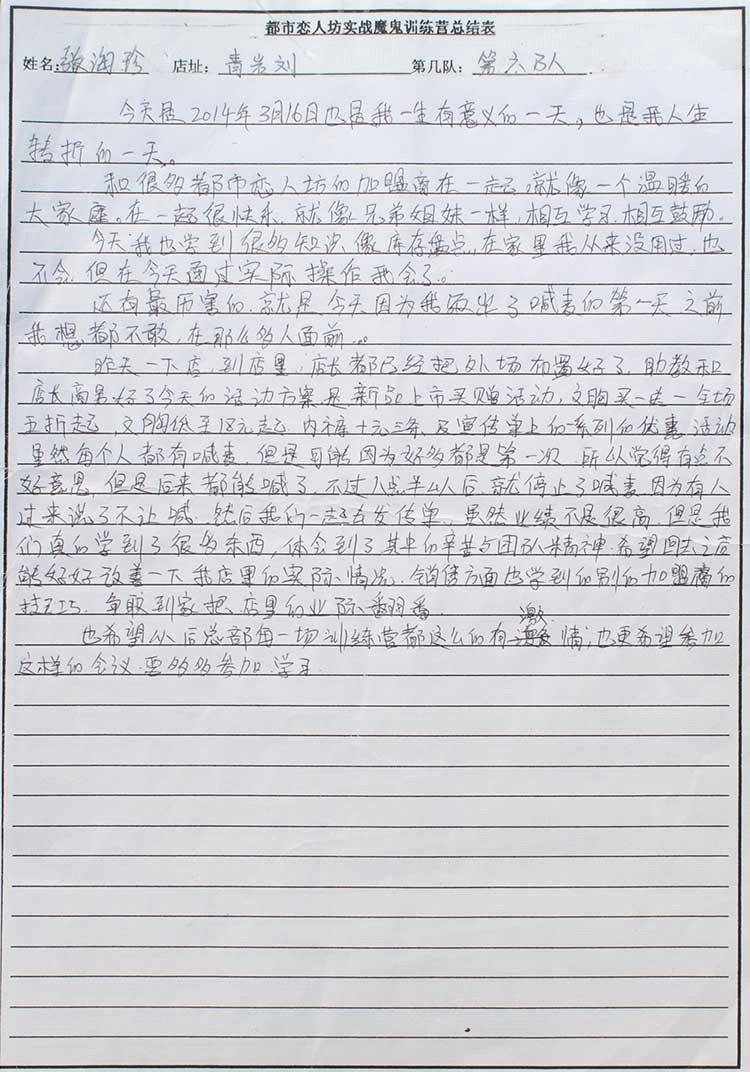 都市恋人坊实战魔鬼训练营总结表
姓名:张淘珍 店址:青岩刘 第几队:第六队
今天是2014年3月16日也是我一生有意义的一天,也是我人生
转折的一天。
和很多都市恋人坊的加盟商在一起,就像一个温暖的
大家庭。在一起很快乐,就像兄弟姐妹一样,相互学习,相互鼓励。
今天我也学到很多知识,像库存盘点,在家里我从来没用过,也
不会,但在今天通过实际操作我会了。
还有最历害的,就是今天因为我领出了喊麦的第一天之前
我想都不敢,在那么多人面前...
昨天一下店,到店里,店长都已经把外场布置好了,助教和
店长商量好了今天的活动方案是新品上市买赠活动,文胸买一送一全场
五折起,文胸低至18元起,内裤十元三条,及宣传单上的一系列的优惠活动
虽然每个人都有喊麦,但是可能因为好多都是第一次,所以觉得有点不
好意思,但是后来都能喊了,不过八点半以后,就停止了喊麦因为有人
过来说了不让喊,然后我们一起去发传单,虽然业绩不是很高,但是我
们真的学到了很多东西,体会到了其中的辛苦与团队精神,希望回去之后
能好好改善一下我店里的实际情况,销售方面也学到的别的加盟商的
技巧,争取到家把店里的业际翻番.
也希望以后总部每一场训练营都这么的有激情,也更希望参加
这样的会议,要多多参加学习.